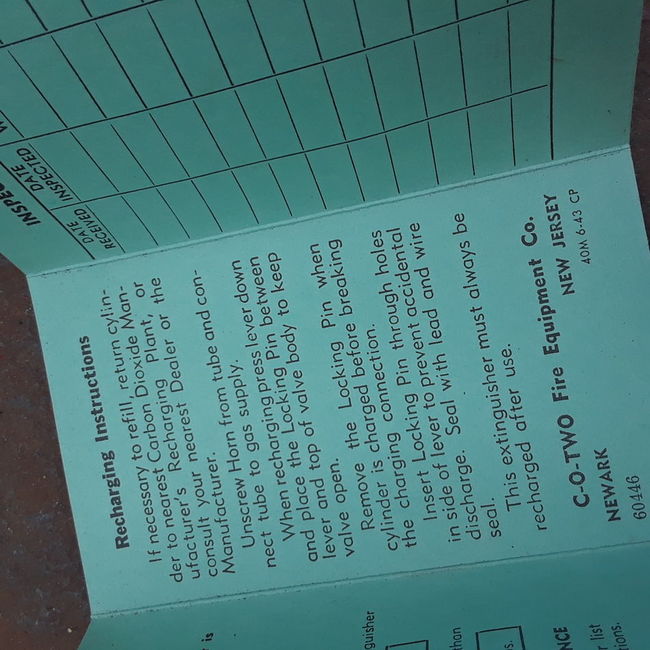 INSPEC
DATE RECEIVED
DATE INSPECTED
W
Recharging Instructions
If necessary to refill, return cylin-
der to nearest Carbon Dioxide Man-
ufacturer's Recharging Plant, or
consult your nearest Dealer or the
Manufacturer.
Unscrew Horn from tube and con-
nect tube to gas supply.
When recharging press lever down
and place the Locking Pin between
lever and top of valve body to keep
valve open.
Remove the Locking Pin when
cylinder is charged before breaking
the charging connection.
Insert Locking Pin through holes
in side of lever to prevent accidental
discharge. Seal with lead and wire
seal.
This extinguisher must always be
recharged after use.
C-O-TWO Fire Equipment Co.
NEWARK NEW JERSEY
60446 40M 6-43 CP
is
guisher
than
s.
NCE
r list
tions.